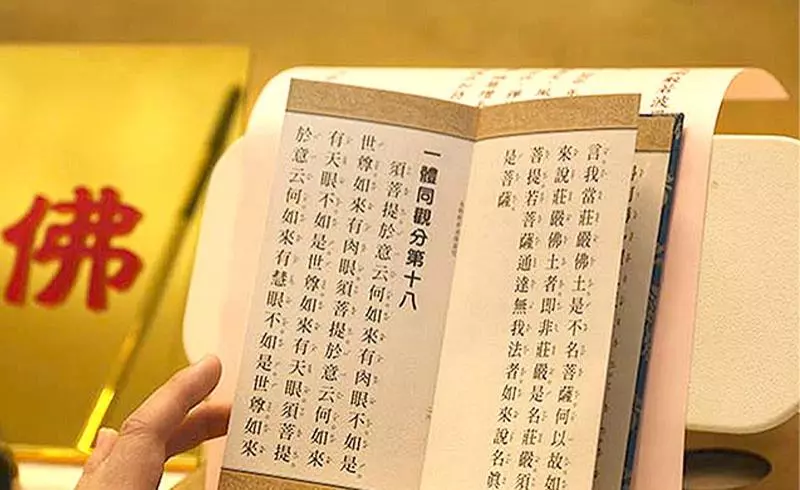 言我當莊嚴佛土是不名菩薩何以故如
來說莊嚴佛土者即非莊嚴是名莊嚴須
菩提若菩薩通達無我法者如來說名真
是菩薩
一體同觀分第十八
須菩提於意云何如來有肉眼不如是
世尊如來有肉眼須菩提於意云何如來
有天眼不如是世尊如來有天眼須菩提
於意云何如來有慧眼不如是世尊如來
佛